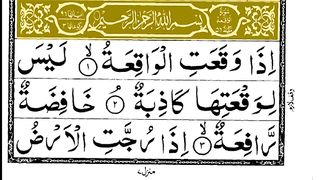 بِسْمِ اللّٰهِ الرَّحْمٰنِ الرَّحِيْمِ
اِذَا وَقَعَتِ الْوَاقِعَةُ ۙ﴿۱﴾ لَيْسَ
لِوَقْعَتِهَا كَاذِبَةٌ ۘ﴿۲﴾ خَافِضَةٌ
رَّافِعَةٌ ۙ﴿۳﴾ اِذَا رُجَّتِ الْاَرْضُ
منزل ۷